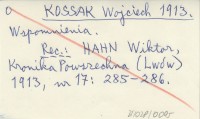 KOSSAK Wojciech 1913.
Wspomnienia.
Rec.: HAHN Wiktor,
Kronika Powszechna (Lwów)
1913, nr 17: 285-286.